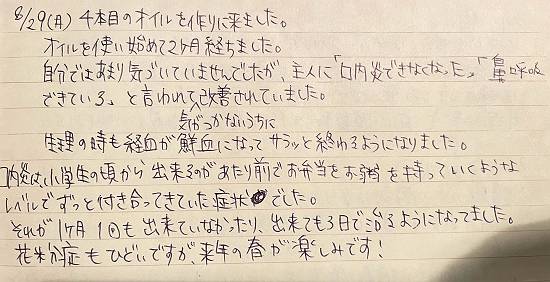 8/29(月) 4本目のオイルを作りに来ました。
オイルを使い始めて2ヶ月経ちました。
自分ではあまり気づいていませんでしたが、主人に「口内炎できなくなった」「鼻呼吸
できている」と言われて改善されていました。
気がつかないうちに
生理の時も経血が鮮血になってサラッと終わるようになりました。
口内炎は小学生の頃から出来るのがあたり前でお弁当をお粥を持っていくような
レベルでずっと付き合ってきていた症状でした。
それが1ヶ月1回も出来ていなかったり、出来ても3日で治るようになってました。
花粉症もひどいですが、来年の春が楽しみです!